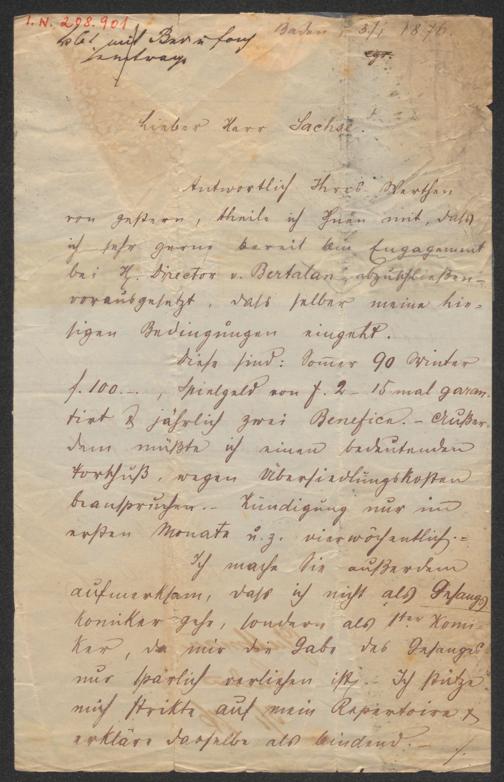 I.N. 298.901
Baden, 3/1 1876
Lieber Herr Sachse.
Antwortlich Ihres Werthen
von gestern, theile ich Ihnen mit, daß
ich sehr gerne bereit bin Engagement
bei H. Director v. Bertalan abzuschließen –
vorausgesetzt, daß selber meine hie-
sigen Bedingungen eingeht.
Diese sind: Somer 90 Winter
f. 100.–, Spielgeld von f. 2 – 15 mal garan-
tirt & jährlich zwei Benefice. – Außer-
dem müßte ich einen bedeutenden
Vorschuß, wegen Übersiedlungskosten
beanspruchen. – Kündigung nur im
ersten Monate u. z. vierwöchentlich. –
Ich mache Sie außerdem
aufmerksam, daß ich nicht als Gesangs
komiker gehe, sondern als 1ter Komi-
ker, da mir die Gabe des Gesanges
nur spärlich verliehen ist. – Ich stütze
mich strikte auf mein Repertoire &
erkläre dasselbe als bindend. –